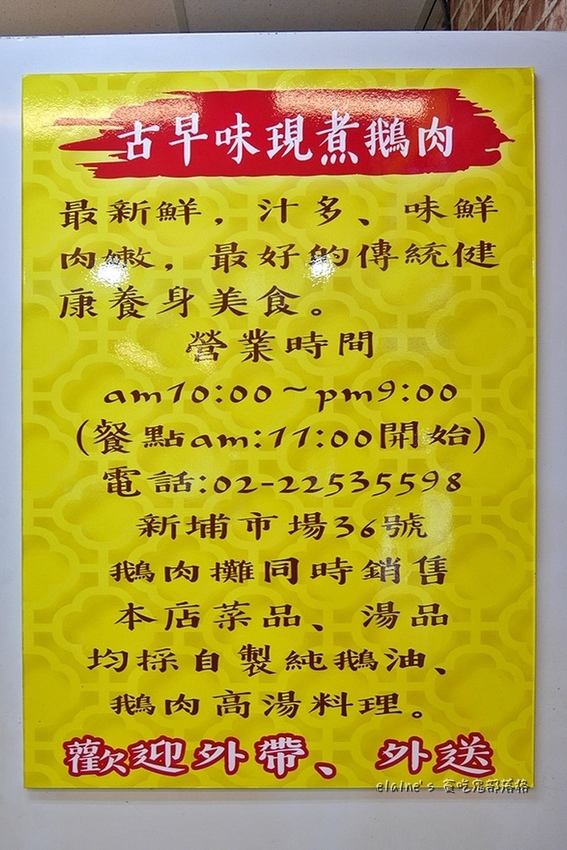 古早味現煮鵝肉
最新鮮，汁多、味鮮
肉嫩，最好的傳統健
康養身美食。
營業時間
am10:00~pm9:00
(餐點am:11:00開始)
電話:02-22535598
新埔市場36號
鵝肉攤同時銷售
本店菜品、湯品
均採自製純鵝油、
鵝肉高湯料理。
歡迎外帶、外送
elaine's 貪吃鬼部落格